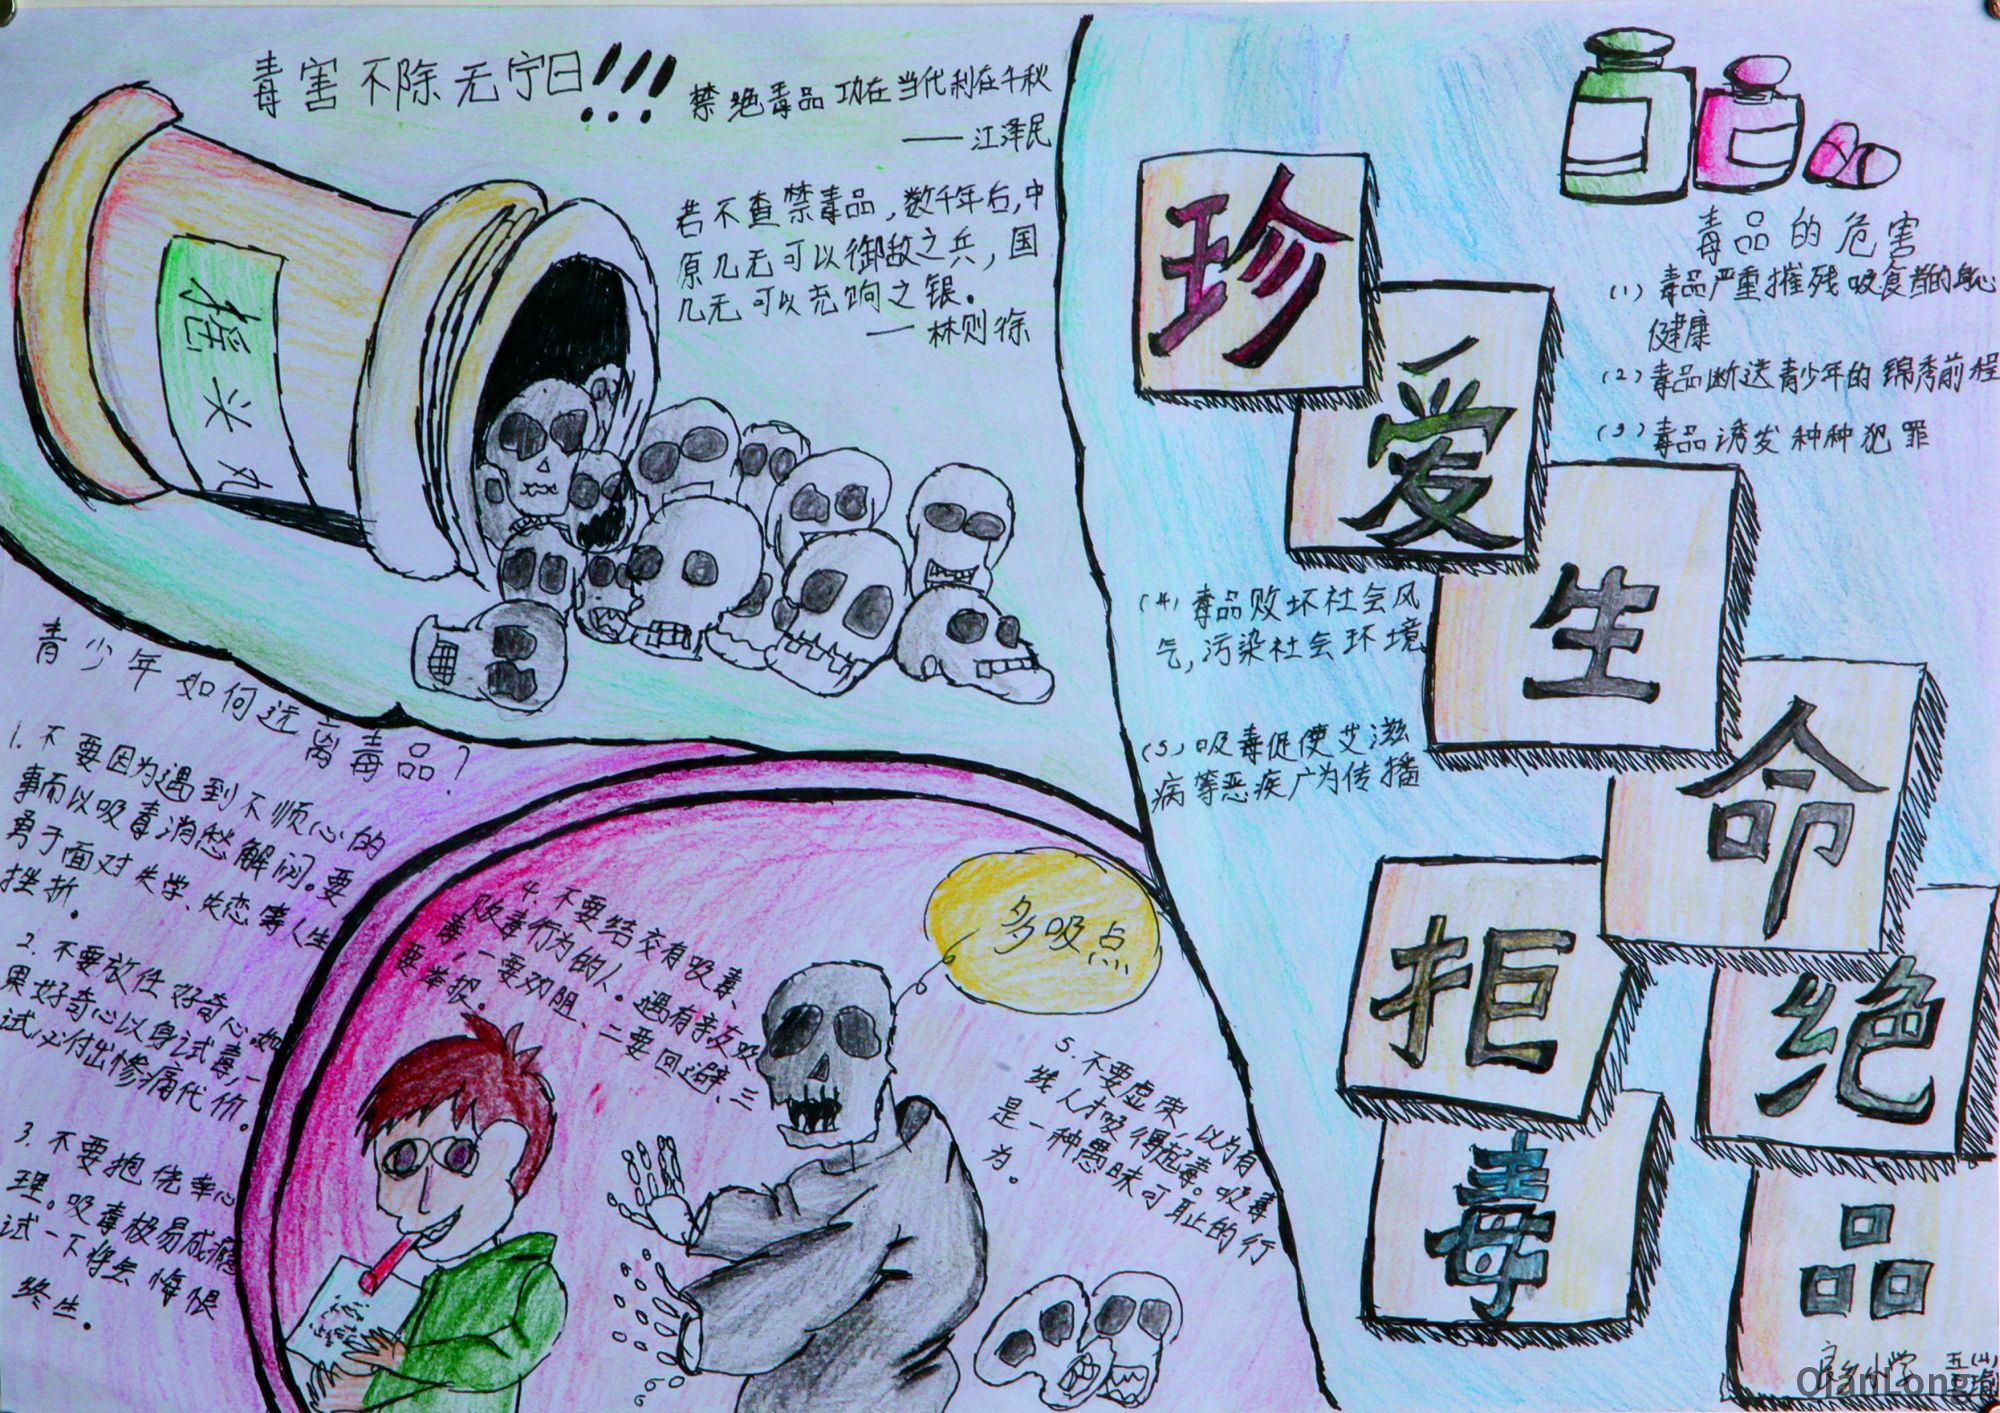 毒害不除无宁日!!!
禁绝毒品 功在当代 利在千秋
——江泽民
若不查禁毒品，数千年后，中
原几无可以御敌之兵，国
几无可以充饷之银。
——林则徐
摇头丸
珍爱生命
拒绝
毒品
毒品的危害
(1) 毒品严重摧残吸食者的身心
健康
(2) 毒品断送青少年的锦秀前程
(3) 毒品诱发种种犯罪
(4) 毒品败坏社会风
气,污染社会环境
(5) 吸毒促使艾滋
病等恶疾广为传播
青少年如何远离毒品?
1. 不要因为遇到不顺心的
事而以吸毒消愁解闷。要
勇于面对失学、失恋等人生
挫折。
2. 不要放任好奇心.如
果好奇心以身试毒,一
试必付出惨痛代价。
3. 不要抱侥幸心
理。吸毒极易成瘾
试一下将会悔恨
终生。
4. 不要结交有吸毒、
贩毒行为的人。遇有亲友吸
毒,一要劝阻、二要回避、三
要举报。
多吸点
5. 不要虚荣,以为有
钱人才吸得起毒。吸毒
是一种愚昧可耻的行
为。
小学
QianLong